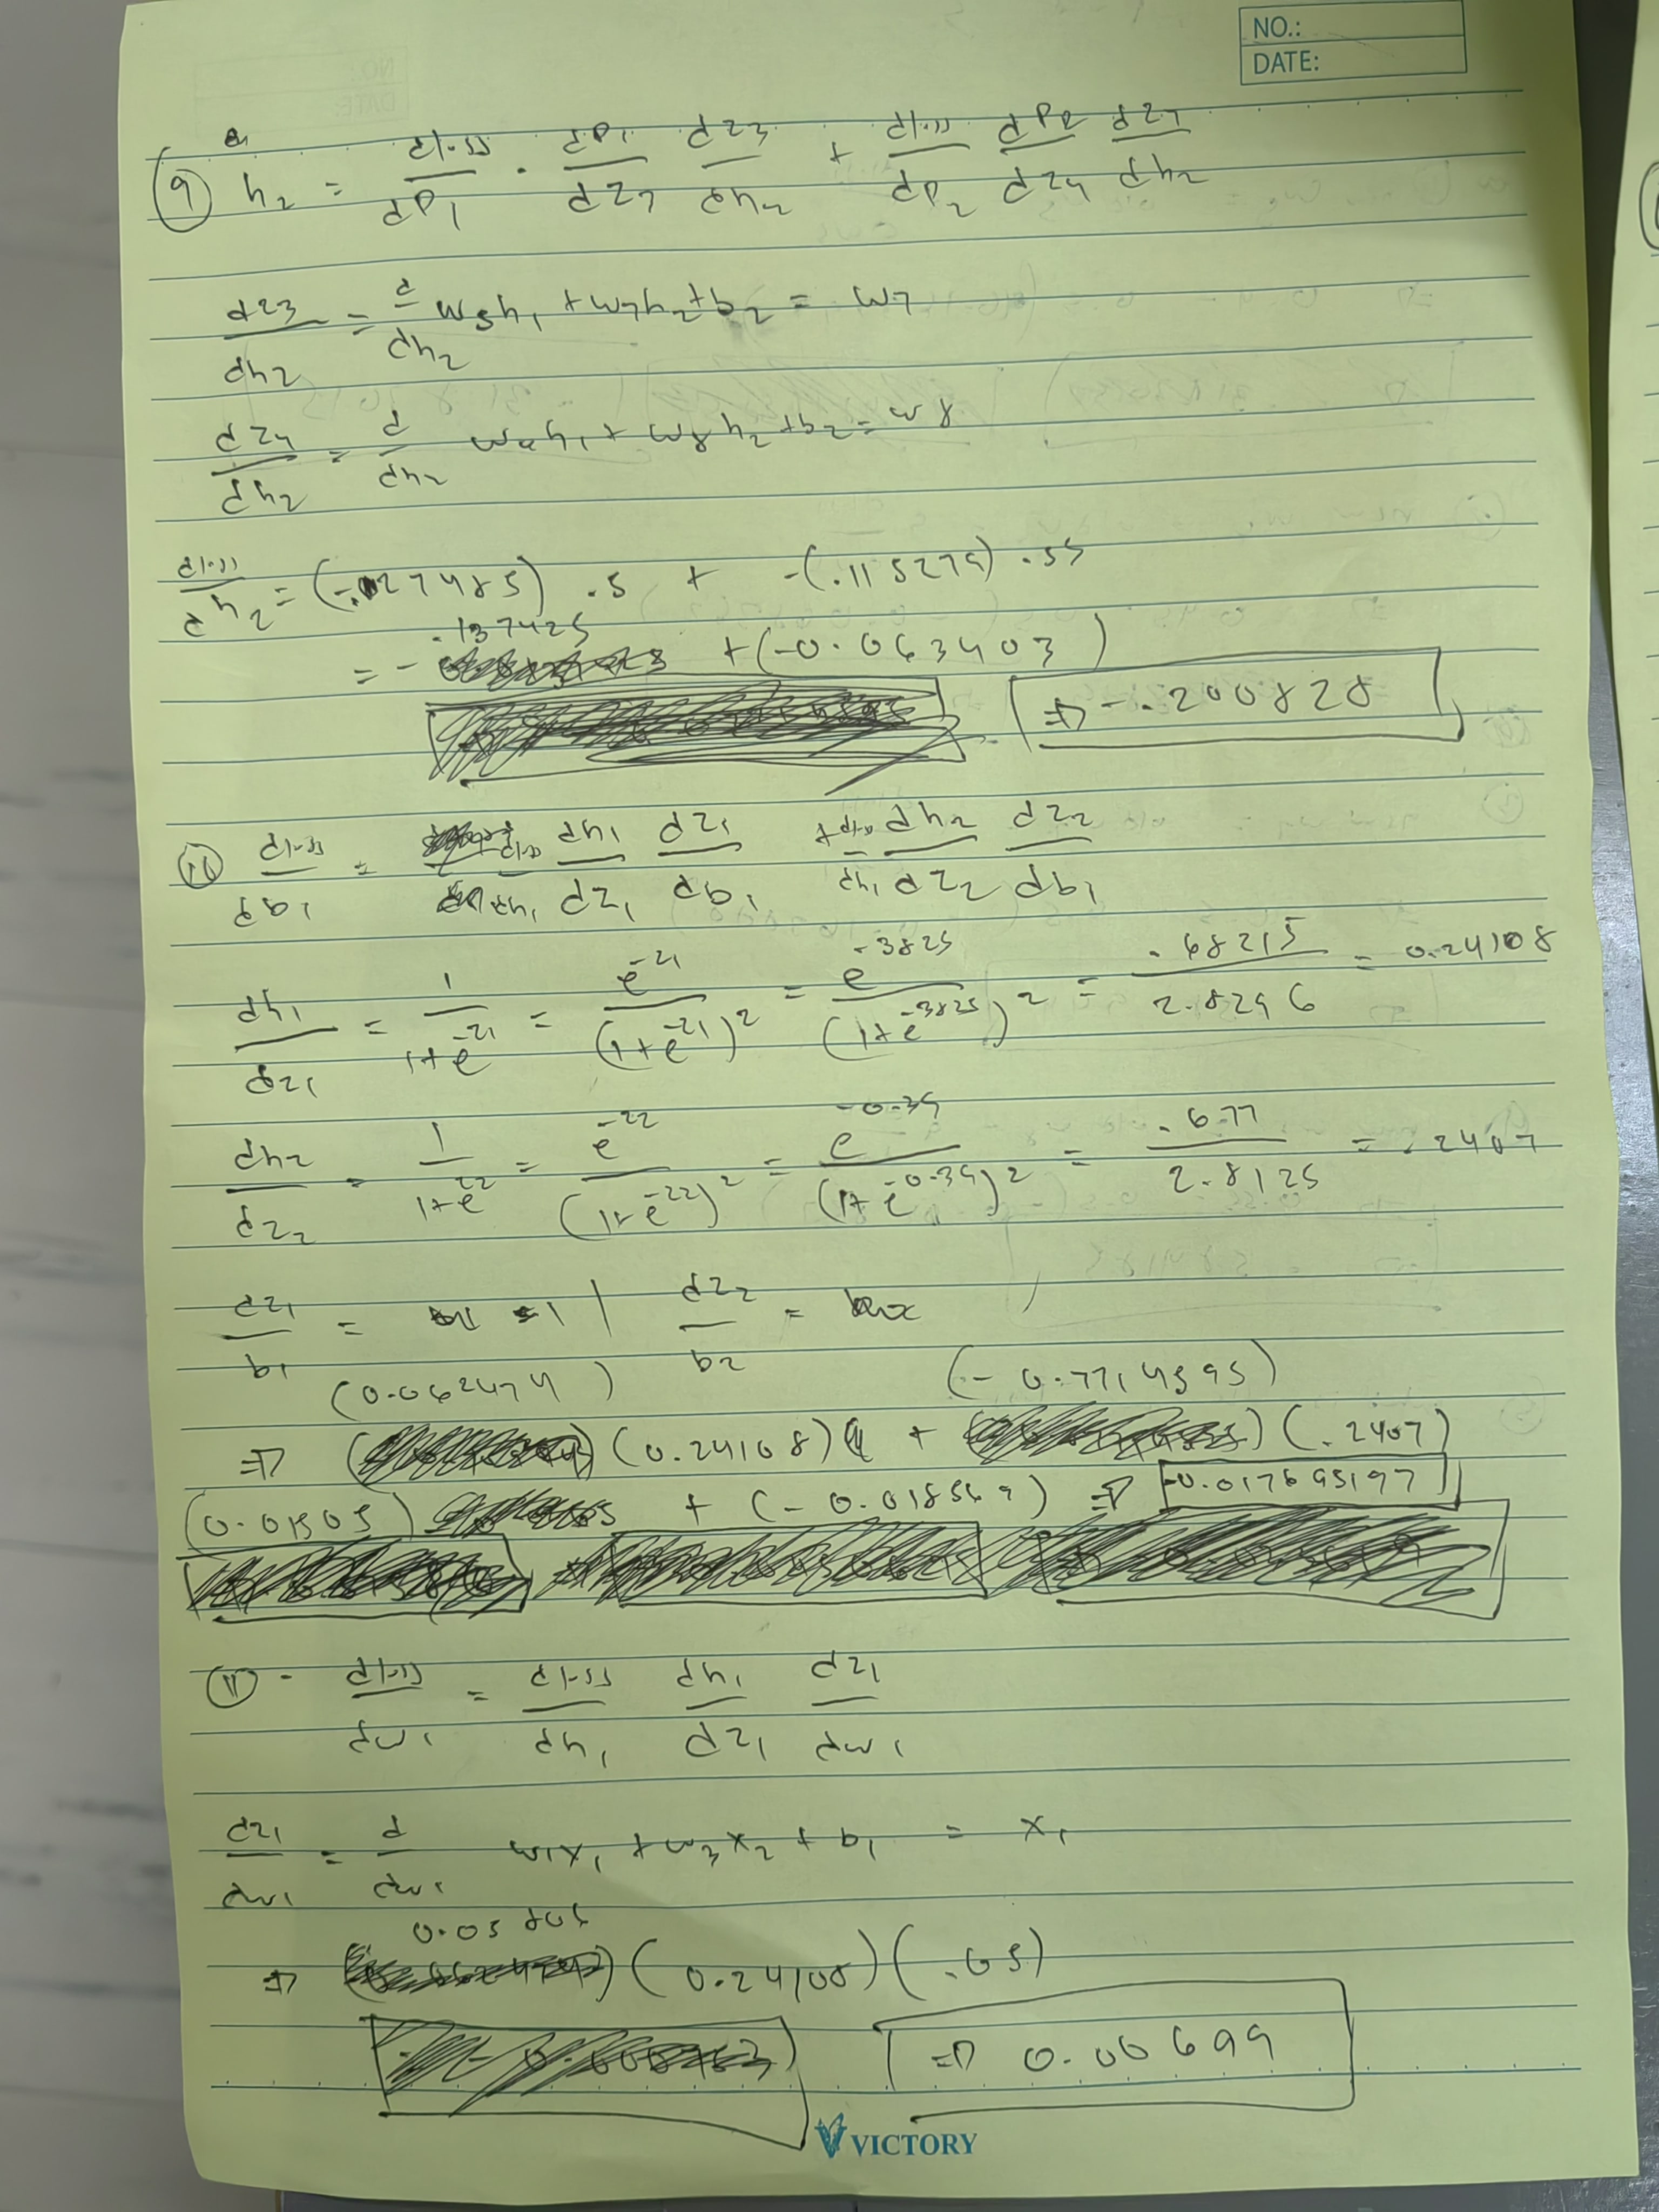 NO.:
DATE:
⑨ h₂ = dloss/dP₁ · dP₁/dz₃ dz₃/dh₂ + dloss/dP₂ dP₂/dz₄ dz₄/dh₂
dz₃/dh₂ = d/dh₂ w₅h₁ + w₇h₂ + b₂ = w₇
dz₄/dh₂ = d/dh₂ w₆h₁ + w₈h₂ + b₂ = w₈
dloss/dh₂ = (-.27485) .5 + -(.115275) .55
= - .137425 + (-0.063403)
⇒ -.200828
⑩ dloss/db₁ = dloss/dh₁ dh₁/dz₁ dz₁/db₁ + dloss/dh₁ dh₂/dz₂ dz₂/db₁
dh₁/dz₁ = 1/1+e^-z₁ = e^-z₁/(1+e^-z₁)² = e^-3825/(1+e^-3825)² = .68215/2.8296 = 0.24108
dh₂/dz₂ = 1/1+e^z₂ = e^-z₂/(1+e^-z₂)² = e^-0.39/(1+e^-0.39)² = .677/2.8125 = .2407
dz₁/b₁ = 1 | dz₂/b₂ =
(0.062474) (-0.7714595)
⇒ (0.24108) + (.2407)
(0.01505) + (-0.018569) ⇒ -0.017695197
⑪ - dloss/dw₁ = dloss/dh₁ dh₁/dz₁ dz₁/dw₁
dz₁/dw₁ = d/dw₁ w₁x₁ + w₃x₂ + b₁ = x₁
0.05
⇒ (0.24108) (.05)
⇒ 0.00699
VICTORY